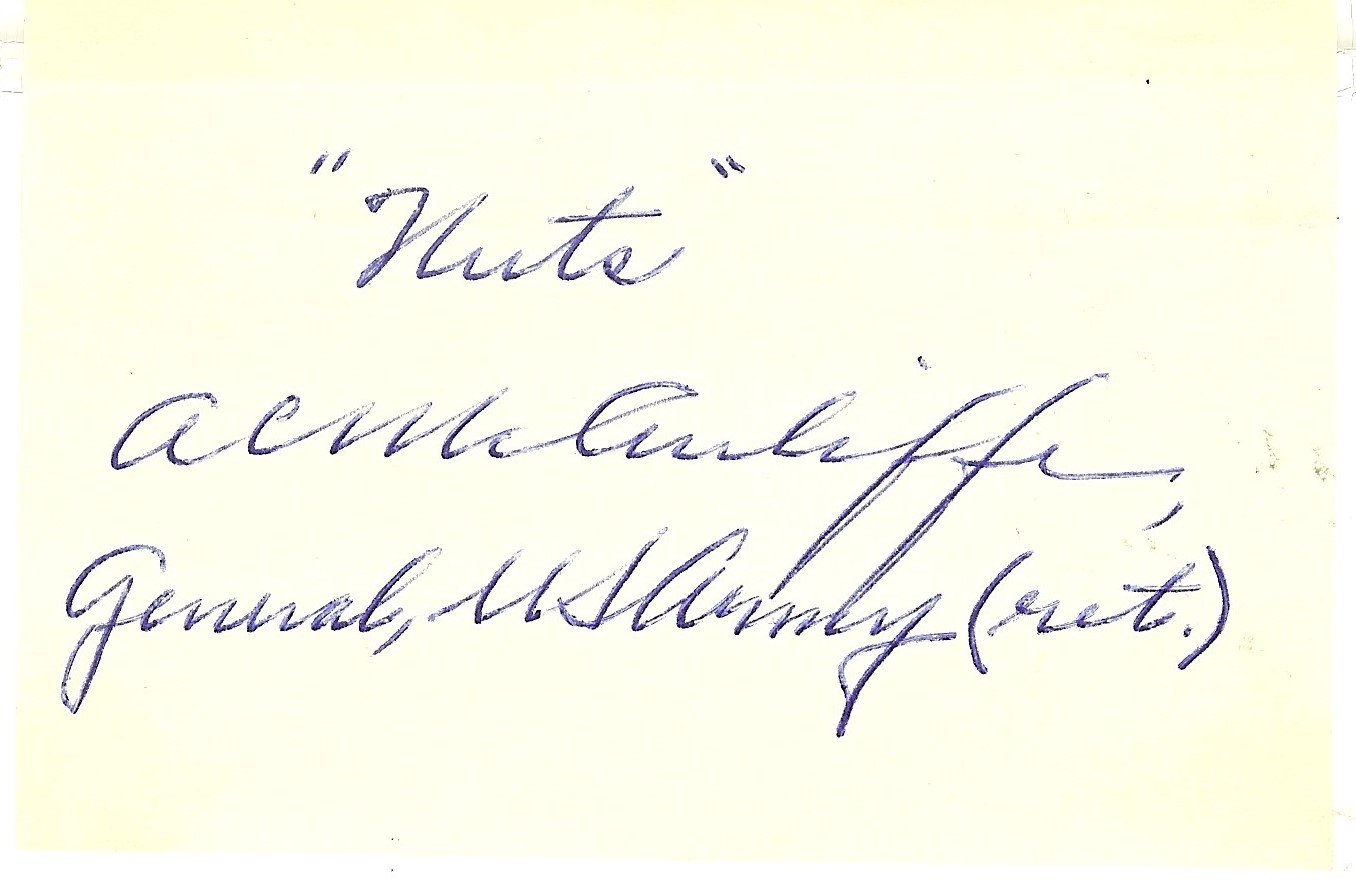 "Nuts"
ACMcAuliffe,
General, US Army (ret.)